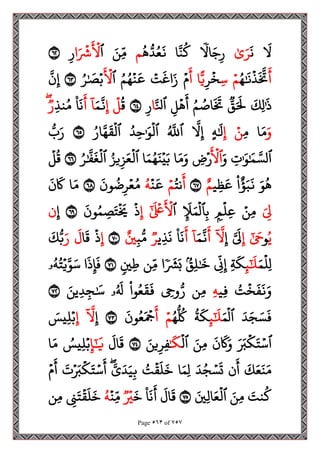 لَا نَرَىٰ رِجَالًا كُنَّا نَعُدُّهُم مِّنَ ٱلْأَشْرَارِ ٦٢
أَتَّخَذْنَٰهُمْ سِخْرِيًّا أَمْ زَاغَتْ عَنْهُمُ ٱلْأَبْصَٰرُ ٦٣ إِنَّ
ذَٰلِكَ لَحَقٌّ تَخَاصُمُ أَهْلِ ٱلنَّارِ ٦٤ قُلْ إِنَّمَآ أَنَا۠ مُنذِرٌ
وَمَا مِنْ إِلَٰهٍ إِلَّا ٱللَّهُ ٱلْوَٰحِدُ ٱلْقَهَّارُ ٦٥ رَبُّ
ٱلسَّمَٰوَٰتِ وَٱلْأَرْضِ وَمَا بَيْنَهُمَا ٱلْعَزِيزُ ٱلْغَفَّٰرُ ٦٦ قُلْ
هُوَ نَبَؤٌا۟ عَظِيمٌ ٦٧ أَنتُمْ عَنْهُ مُعْرِضُونَ ٦٨ مَا كَانَ
لِيَ مِنْ عِلْمٍۭ بِٱلْمَلَإِ ٱلْأَعْلَىٰٓ إِذْ يَخْتَصِمُونَ ٦٩ إِن
يُوحَىٰٓ إِلَيَّ إِلَّآ أَنَّمَآ أَنَا۠ نَذِيرٌ مُّبِينٌ ٧٠ إِذْ قَالَ رَبُّكَ
لِلْمَلَٰٓئِكَةِ إِنِّي خَٰلِقٌۢ بَشَرًا مِّن طِينٍ ٧١ فَإِذَا سَوَّيْتُهُۥ
وَنَفَخْتُ فِيهِ مِن رُّوحِي فَقَعُوا۟ لَهُۥ سَٰجِدِينَ ٧٢
فَسَجَدَ ٱلْمَلَٰٓئِكَةُ كُلُّهُمْ أَجْمَعُونَ ٧٣ إِلَّآ إِبْلِيسَ
ٱسْتَكْبَرَ وَكَانَ مِنَ ٱلْكَٰفِرِينَ ٧٤ قَالَ يَٰٓإِبْلِيسُ مَا
مَنَعَكَ أَن تَسْجُدَ لِمَا خَلَقْتُ بِيَدَيَّ أَسْتَكْبَرْتَ أَمْ
كُنتَ مِنَ ٱلْعَالِينَ ٧٥ قَالَ أَنَا۠ خَيْرٌ مِّنْهُ خَلَقْتَنِي مِن
Page ٥٦٣ of ٧٥٧